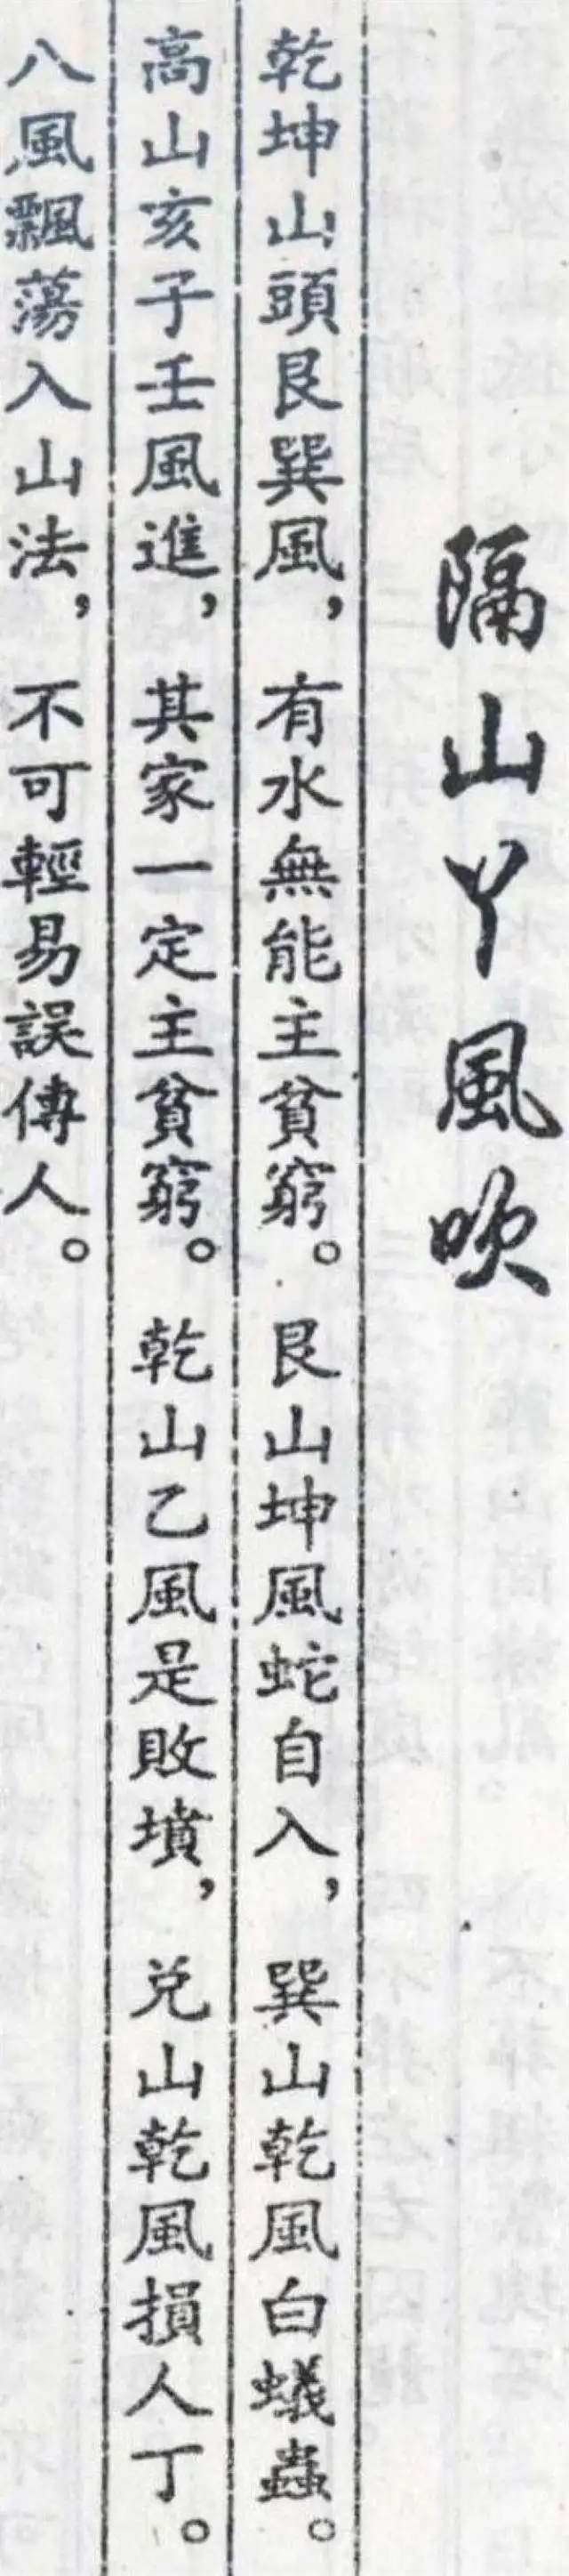 隔山丫風吹
乾坤山頭艮巽風，有水無能主貧窮。艮山坤風蛇自入，巽山乾風白蟻蟲。
高山亥子壬風進，其家一定主貧窮。乾山乙風是敗墳，兌山乾風損人丁。
八風飄蕩入山法，不可輕易誤傳人。